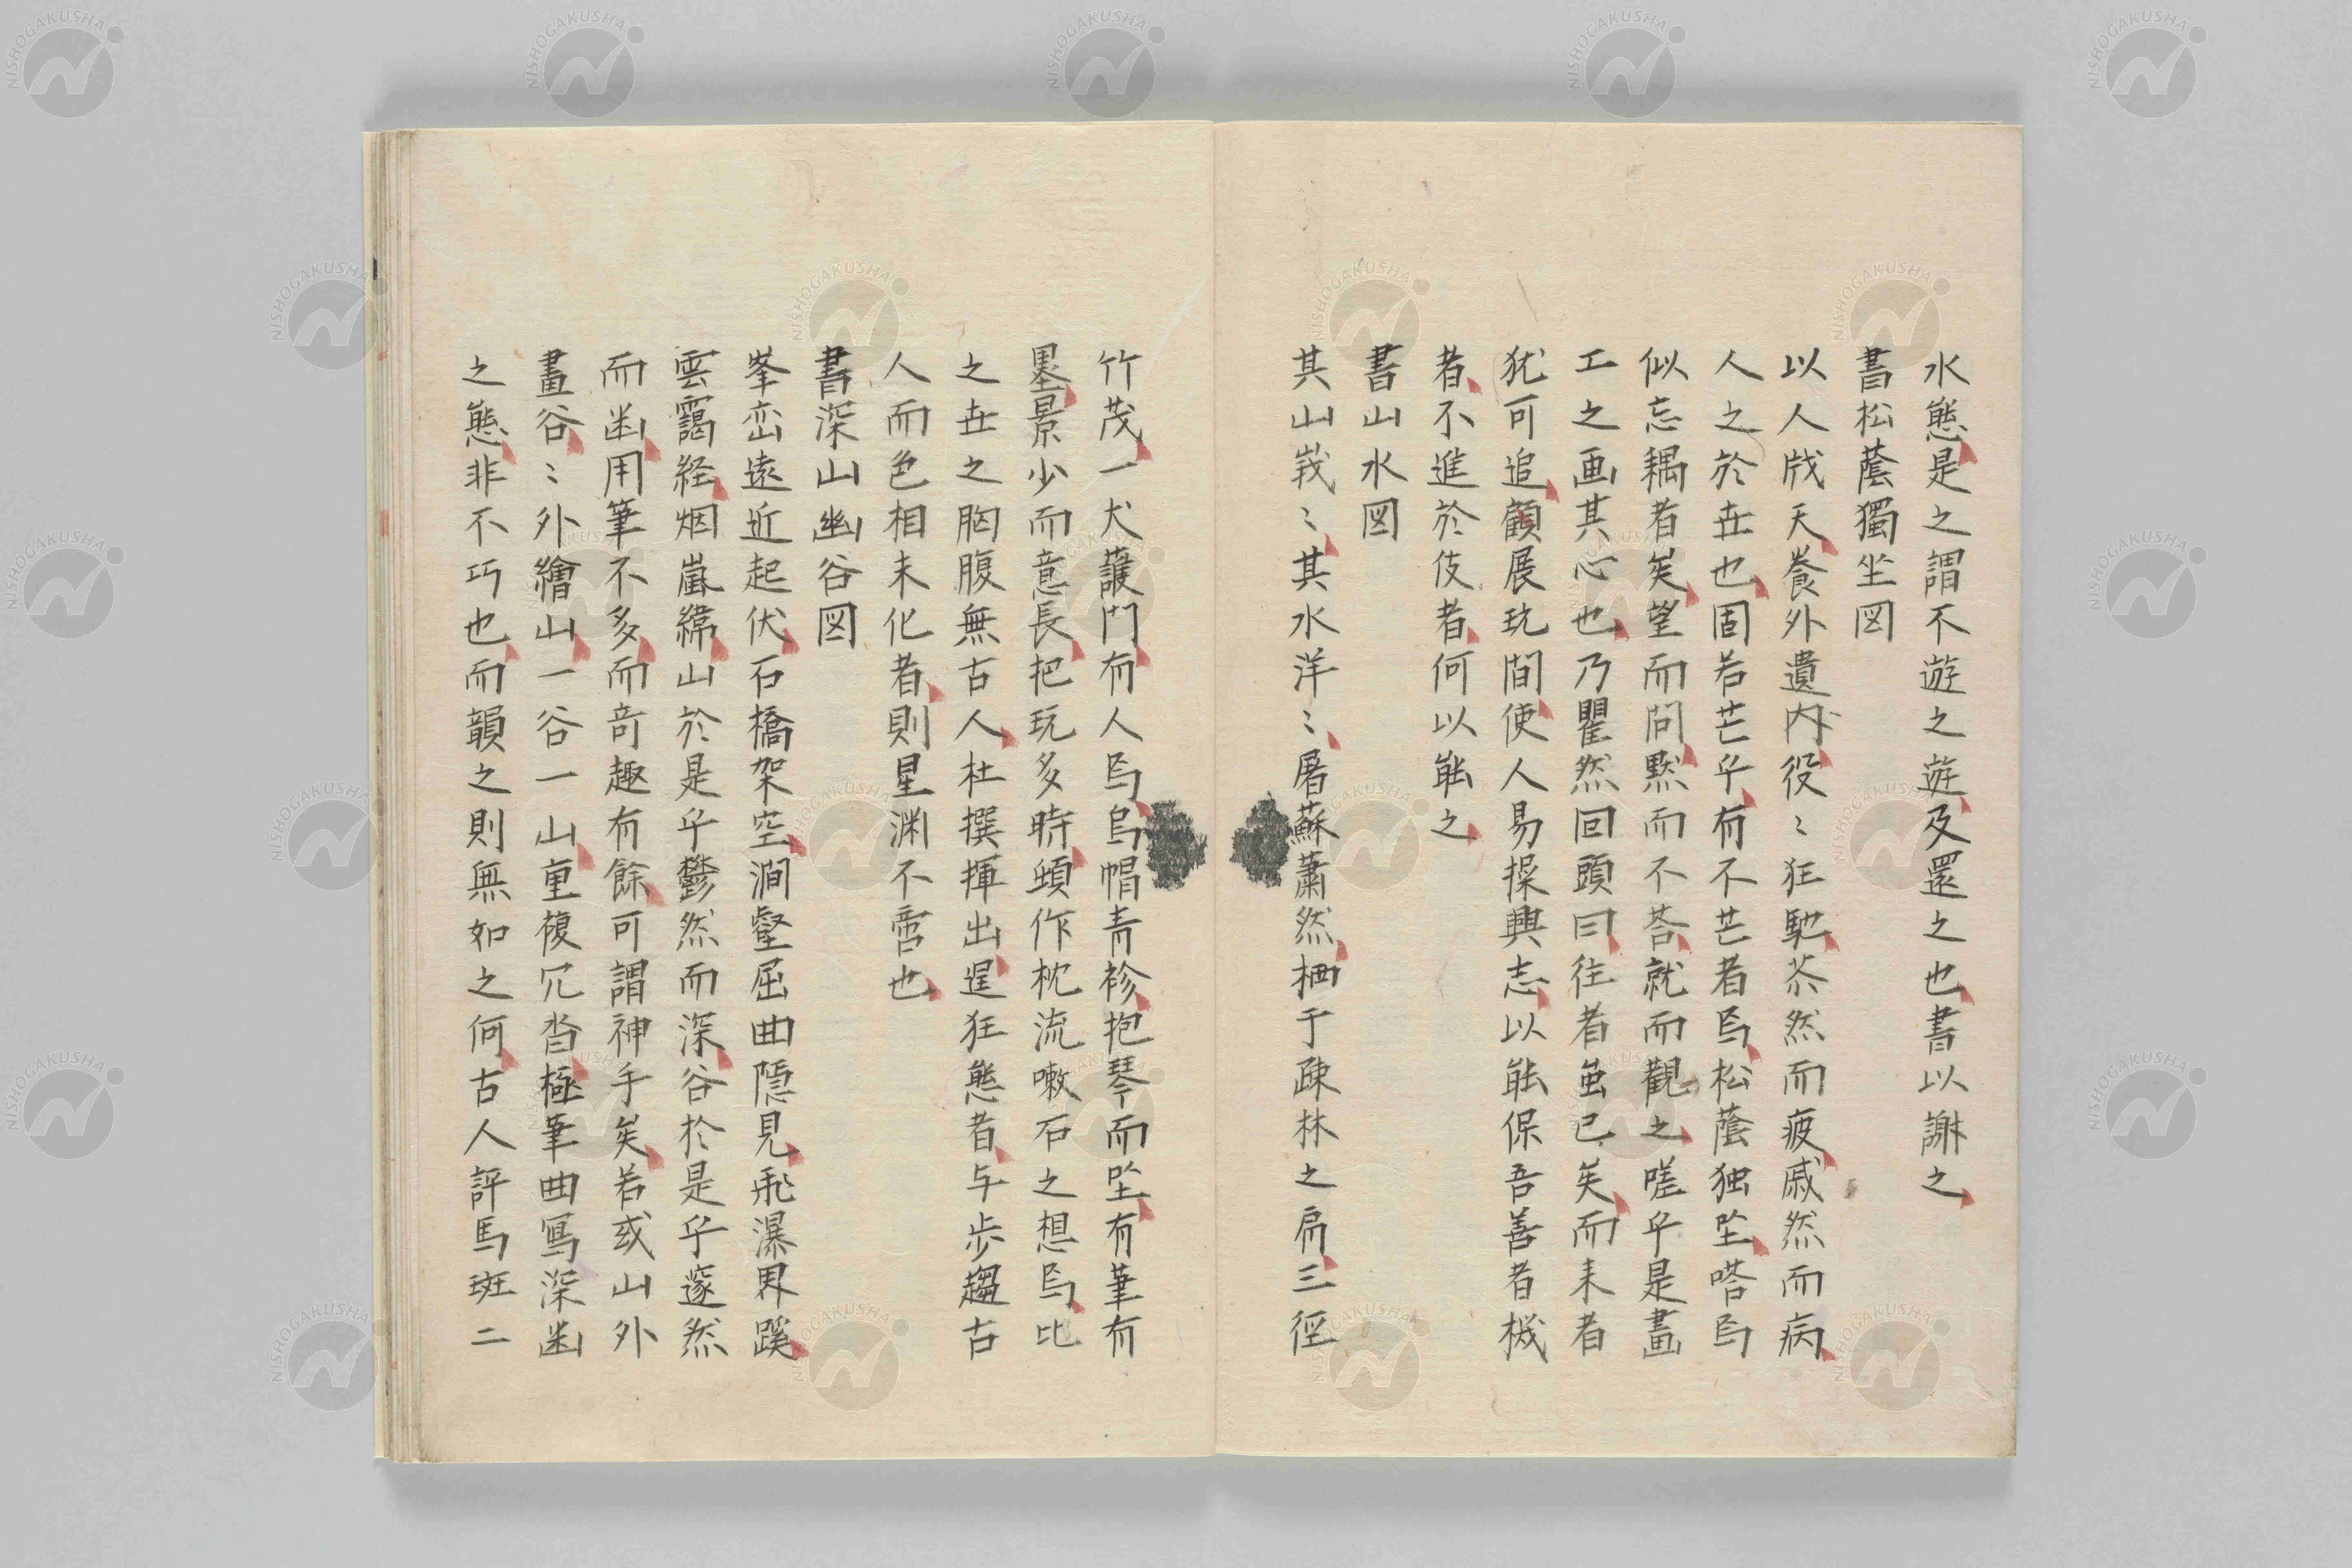 水態是之謂不遊之遊及還之也書以謝之
書松蔭獨坐図
以人戕天養外遺内役〻狂馳苶然而疲戚然而病
人之於世也固若芒乎有不芒者焉松蔭独坐嗒焉
似忘耦者矣望而問黙而不荅就而觀之嗟乎是畫
工之画其心也乃瞿然回頭曰往者虽已矣而来者
犹可追顧展玩間使人易操興志以能保吾善者機
者不進於伎者何以能之
書山水図
其山峩〻其水洋〻屠蘇蕭然栖于疎林之扃三徑
竹茂一犬護門有人焉烏帽青衫抱琴而坐有筆有
墨景少而意長把玩多時頓作枕流嗽石之想焉比
之世之胸腹無古人杜撰揮出逞狂態者与歩趨古
人而色相未化者則星渊不啻也
書深山幽谷図
峯峦遠近起伏石橋架空澗壑屈曲隠見飛瀑界蹊
雲靄経烟嵐緯山於是乎鬱然而深谷於是乎邃然
而幽用筆不多而竒趣有餘可謂神手矣若或山外
畫谷〻外繪山一谷一山重複冗沓極筆曲寫深幽
之態非不巧也而韻之則無如之何古人評馬班二